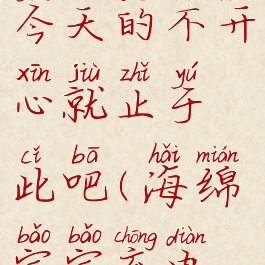 今天的不开
xīn jiù zhǐ yú
心就止于
cǐ bā hǎi mián
此吧(海绵
bǎo bǎo chōng diàn
宝宝充电